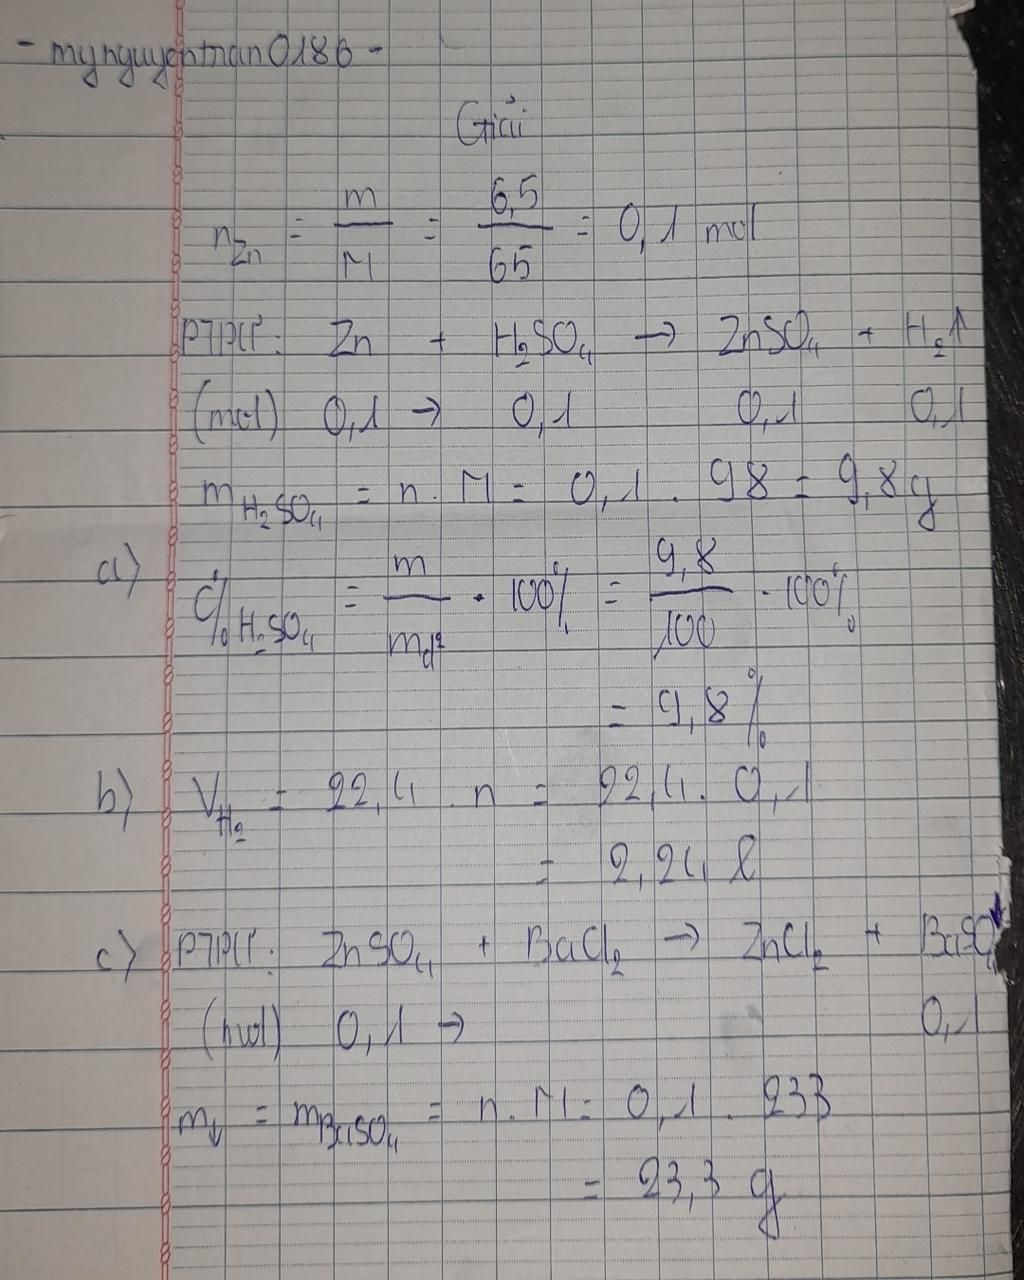 - mynguyentran0186 -
Giải
nZn = m/M = 6,5/65 = 0,1 mol
PTPƯ: Zn + H₂SO₄ → ZnSO₄ + H₂↑
(mol) 0,1 → 0,1 0,1 0,1
mH₂SO₄ = n.M = 0,1 . 98 = 9,8g
a) C%H₂SO₄ = m/md² . 100% = 9,8/100 . 100%
= 9,8%
b) VH₂ = 22,4 . n = 22,4 . 0,1
= 2,24 l
c) PTPƯ: ZnSO₄ + BaCl₂ → ZnCl₂ + BaSO₄↓
(mol) 0,1 → 0,1
m↓ = mBaSO₄ = n.M = 0,1 . 233
= 23,3 g